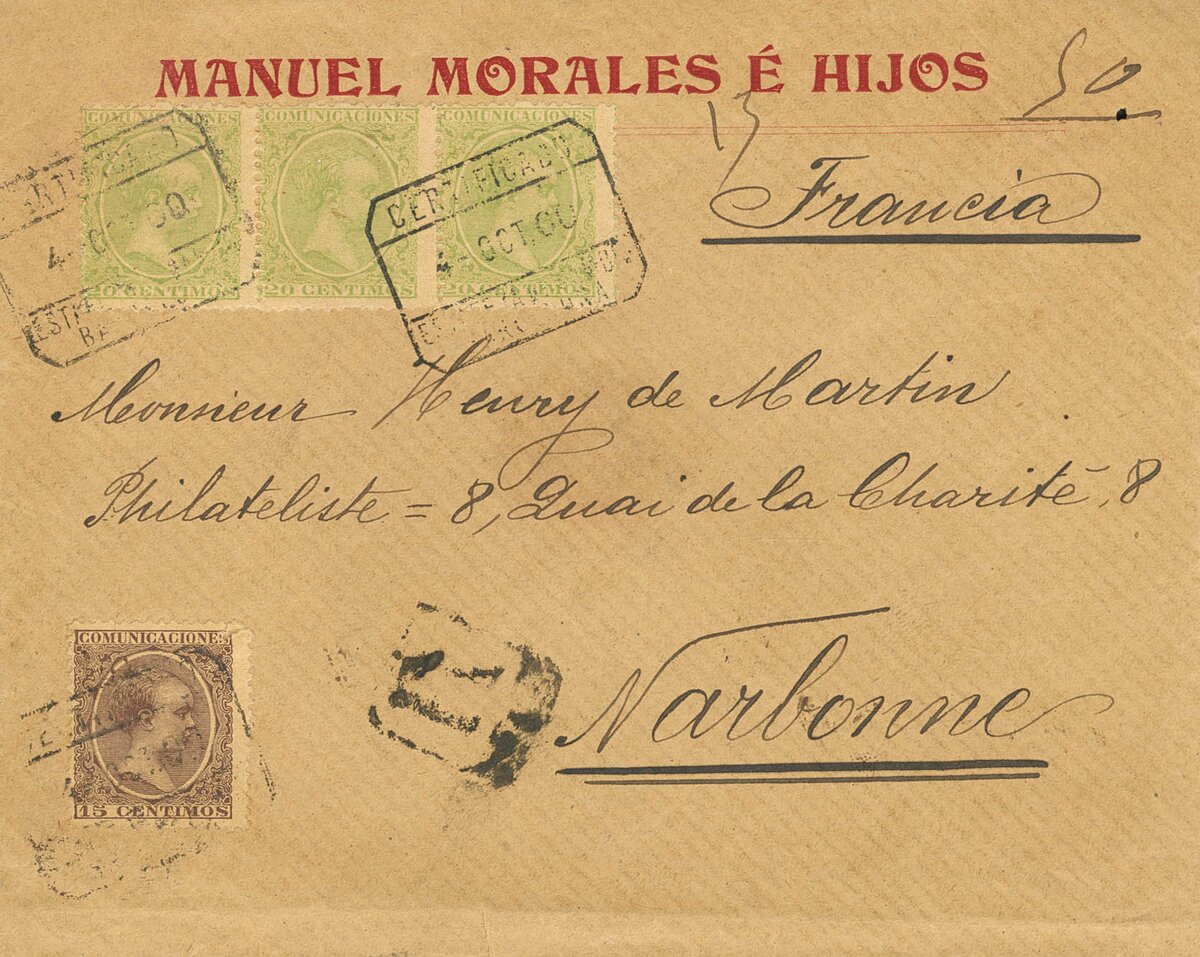 MANUEL MORALES É HIJOS
50
COMUNICACIONES COMUNICACIONES COMUNICACIONES
CERTIFICADO
4- OCT. 00
20 CENTIMOS 20 CENTIMOS 20 CENTIMOS
Francia
Monsieur Henry de Martin
Philateliste = 8, Quai de la Charité, 8
Narbonne
COMUNICACIONES
15 CENTIMOS